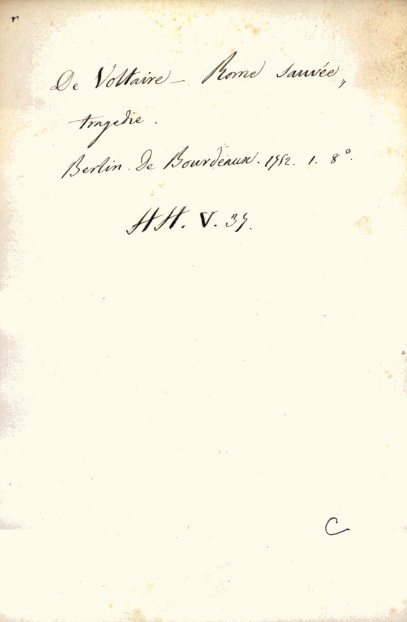 De Voltaire – Rome sauvée,
tragédie.
Berlin. De Bourdeaux. 1752. 1. 8°.
HH. V. 37.
C